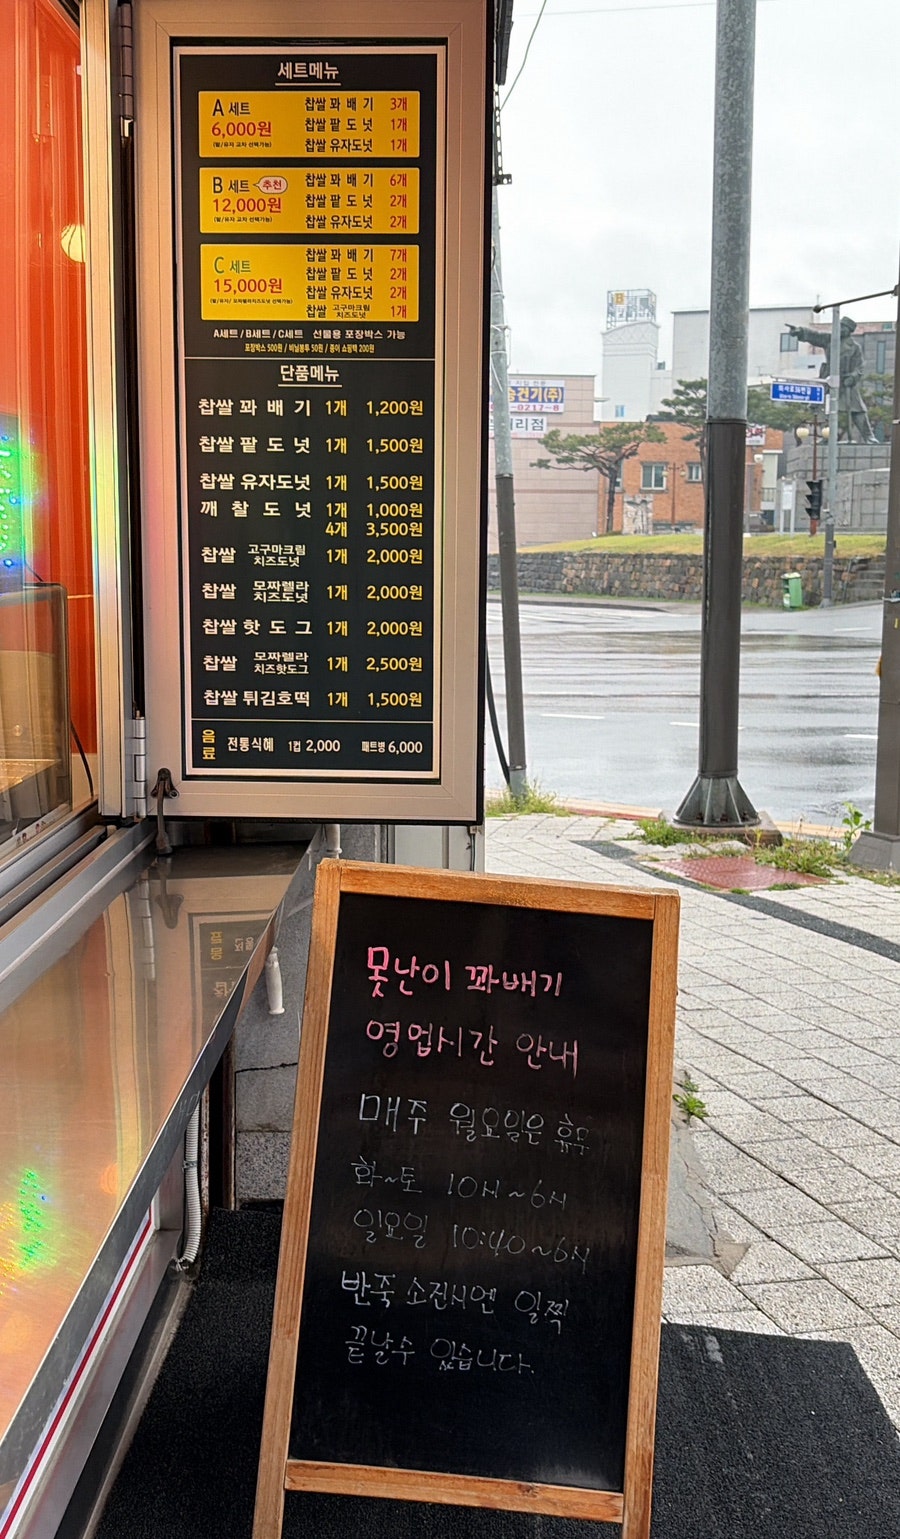 세트메뉴
A 세트
6,000원
(팥/유자 교차 선택가능)
찹쌀 꽈 배 기 3개
찹쌀 팥 도 넛 1개
찹쌀 유자도넛 1개
B 세트 추천
12,000원
(팥/유자 교차 선택가능)
찹쌀 꽈 배 기 6개
찹쌀 팥 도 넛 2개
찹쌀 유자도넛 2개
C 세트
15,000원
찹쌀 꽈 배 기 7개
찹쌀 팥 도 넛 2개
찹쌀 유자도넛 2개
찹쌀 고구마크림 치즈도넛 1개
A세트 / B세트 / C세트 선물용 포장박스 가능
포장박스 500원 / 비닐봉투 50원 / 종이 쇼핑백 200원
단품메뉴
찹쌀 꽈 배 기 1개 1,200원
찹쌀 팥 도 넛 1개 1,500원
찹쌀 유자도넛 1개 1,500원
깨 찰 도 넛 1개 1,000원
4개 3,500원
찹쌀 고구마크림 치즈도넛 1개 2,000원
찹쌀 모짜렐라 치즈도넛 1개 2,000원
찹쌀 핫 도 그 1개 2,000원
찹쌀 모짜렐라 치즈핫도그 1개 2,500원
찹쌀 튀김호떡 1개 1,500원
음료 전통식혜 1컵 2,000 패트병 6,000
못난이 꽈배기
영업시간 안내
매주 월요일은 휴무
화~토 10시~6시
일요일 10:40~6시
반죽 소진시엔 일찍
끝날수 있습니다.